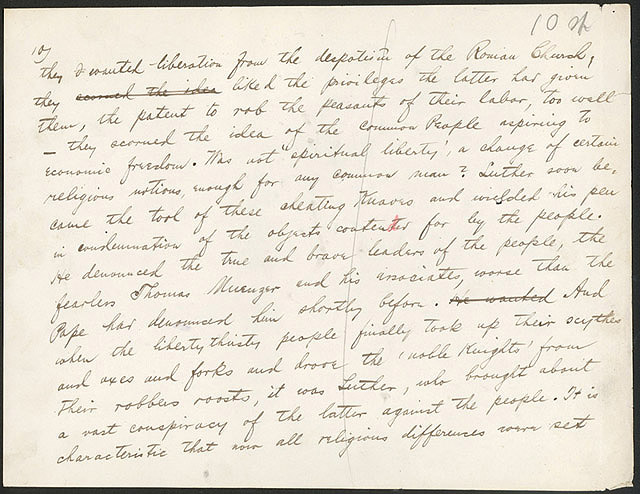 10 
10)
they wanted liberation from the despotism of the Roman Church,
they scorned the idea liked the privileges the latter had given
them, the patent to rob the peasants of their labor, too well
— they scorned the idea of the common People aspiring to
economic freedom. Was not 'spiritual liberty', a change of certain
religious notions, enough for any common man? Luther soon be,
came the tool of these cheating Knaves and wielded his pen
in condemnation of the objects contented for by the people.
He denounced the true and brave leaders of the people, the
fearless Thomas Muenzer and his associates, worse than the
Pape had denounced him shortly before. He wanted And
when the liberty thirsty people finally took up their scythes
and axes and forks and drove the 'noble Knights' from
their robbers roosts, it was Luther, who brought about
a vast conspiracy of the latter against the people. It is
characteristic that now all religious differences were set